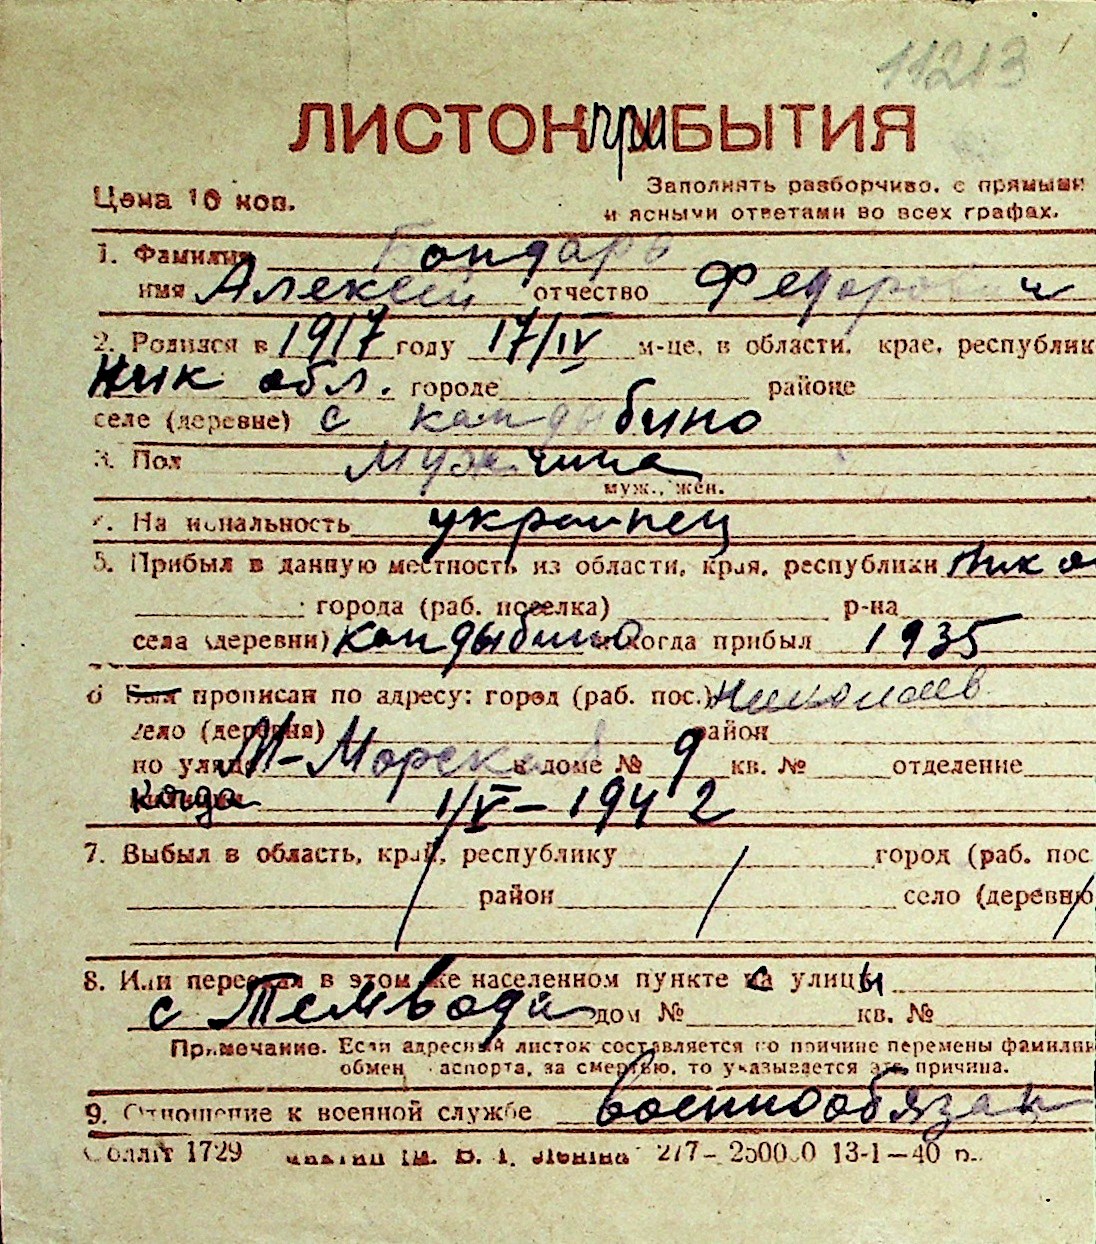 11213
ЛИСТОК прибытия
Цена 10 коп.
Заполнять разборчиво, с прямыми
и ясными ответами во всех графах.
1. Фамилия Бондарь
имя Алексей отчество Федорович
2. Родился в 1917 году 17/IV м-це, в области, крае, республик
Ник обл. городе районе
селе (деревне) с кандыбино
3. Пол Мужчина
муж., жен.
4. Национальность украинец
5. Прибыл в данную местность из области, края, республики Ник о
: города (раб. поселка) р-на
села (деревни) кандыбино когда прибыл 1935
6 Был прописан по адресу: город (раб. пос.) Николаев
село (деревня) район
по улице М-Морская дом № 9 кв. № отделение
когда 1/V-1942
7. Выбыл в область, край, республику город (раб. пос
район село (деревню
8. Или переехал в этом же населенном пункте с улицы
с Темвода дом № кв. №
Примечание. Если адресный листок составляется по причине перемены фамилии
обмен паспорта, за смертью, то указывается эта причина.
9. Отношение к военной службе военнообязан
Облліт 1729 ім. В. І. Леніна 277— 250000 13-1—40 р.